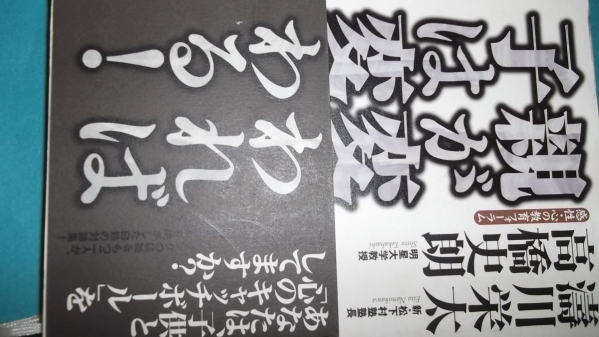 親が変われば
子は変わる!
感性・心の教育フォーラム
高橋史朗
Shiro Takahashi
明星大学教授
濤川栄太
Eita Namikawa
新・松下村塾塾長
あなたは、子供と
「心のキャッチボール」を
してますか?